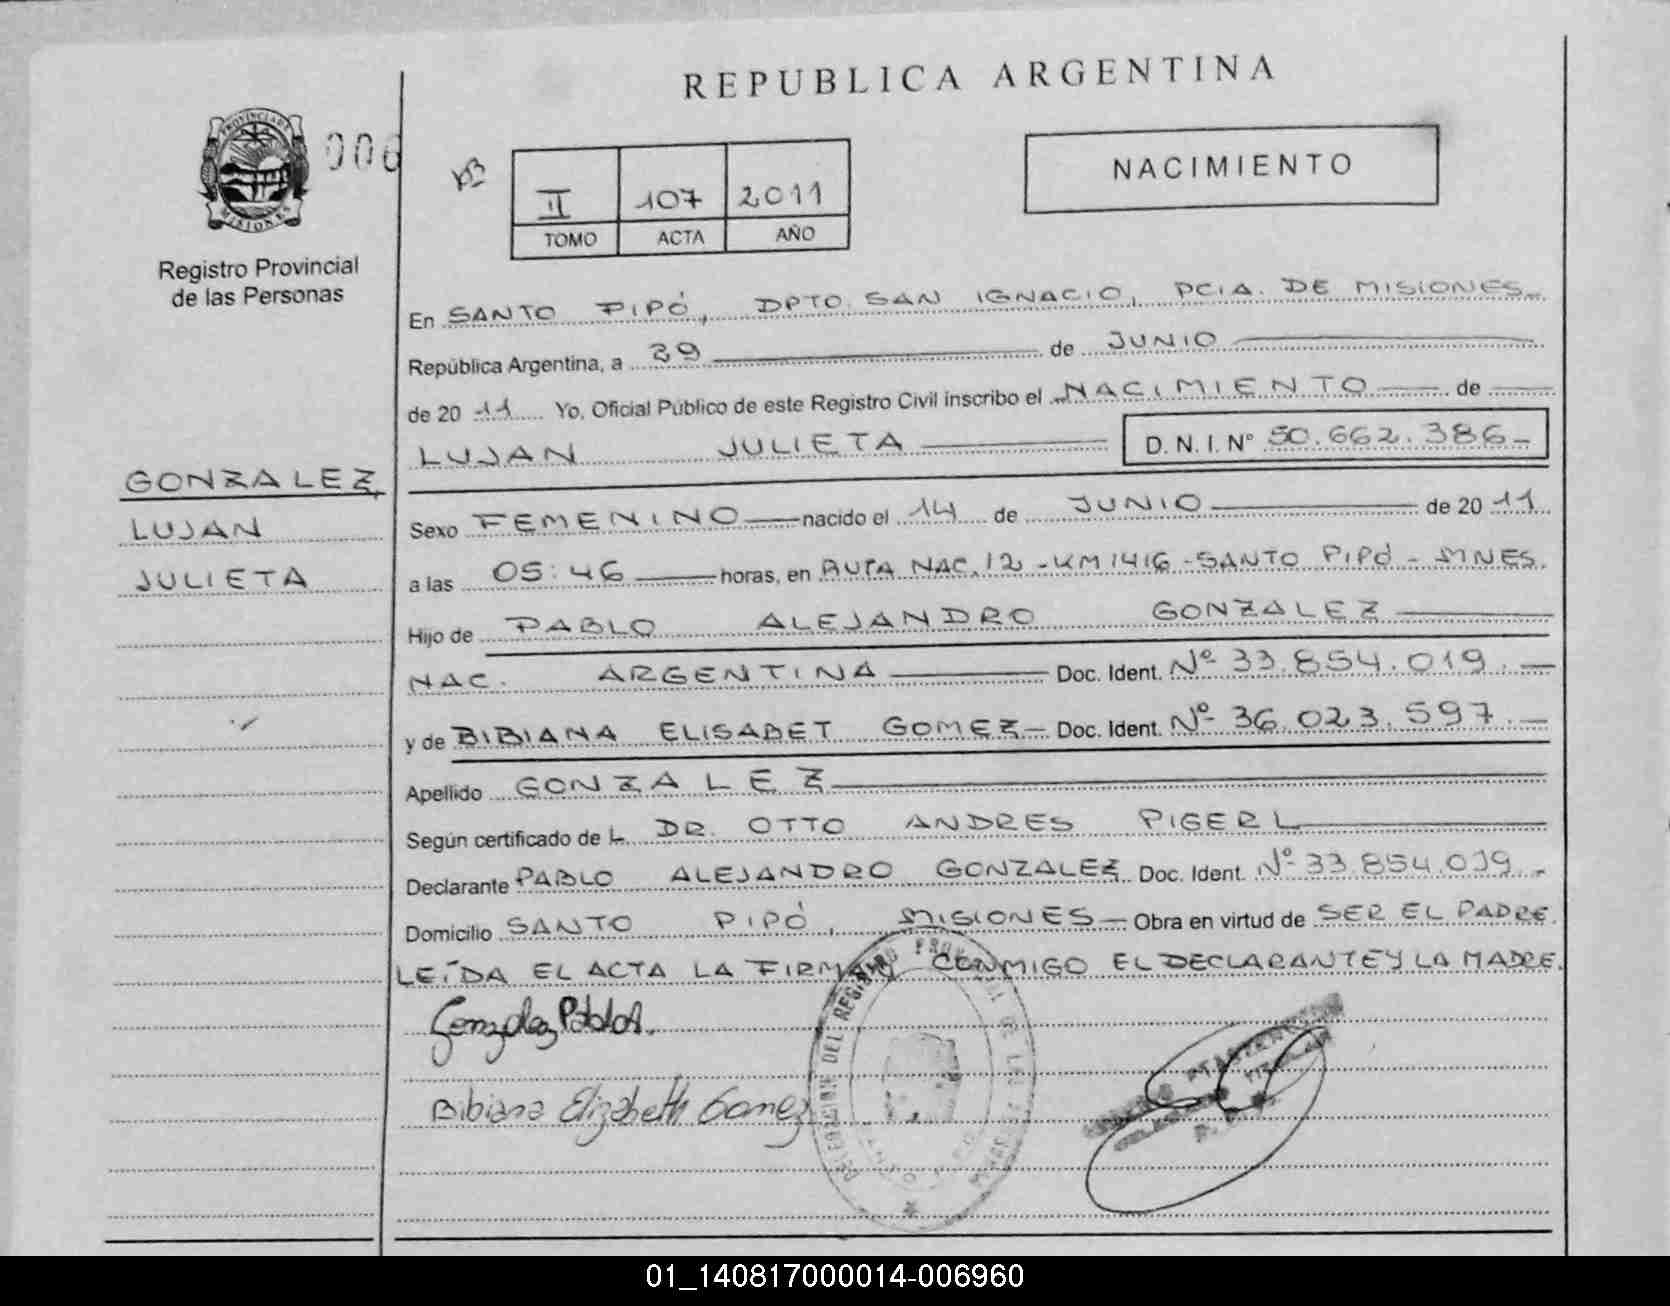 REPUBLICA ARGENTINA
PROVINCIA DE
MISIONES
006
Registro Provincial
de las Personas
II 107 2011
TOMO ACTA AÑO
NACIMIENTO
En SANTO PIPÓ, DPTO. SAN IGNACIO, PCIA. DE MISIONES
República Argentina, a 29 de JUNIO
de 20 11 Yo, Oficial Público de este Registro Civil inscribo el NACIMIENTO de
LUJAN JULIETA D.N.I. Nº 50.662.386
GONZALEZ
LUJAN
JULIETA
Sexo FEMENINO nacido el 14 de JUNIO de 20 11
a las 05:46 horas, en RUTA NAC. 12 - KM 1416 - SANTO PIPÓ - MNES.
Hijo de PABLO ALEJANDRO GONZALEZ
NAC. ARGENTINA Doc. Ident. Nº 33.854.019
y de BIBIANA ELISABET GOMEZ Doc. Ident. Nº 36.023.597
Apellido GONZALEZ
Según certificado de L. DR. OTTO ANDRES PIGERL
Declarante PABLO ALEJANDRO GONZALEZ Doc. Ident. Nº 33.854.019
Domicilio SANTO PIPÓ, MISIONES Obra en virtud de SER EL PADRE.
LEÍDA EL ACTA LA FIRMAN CONMIGO EL DECLARANTE Y LA MADRE.
Gonzalez Pablo A.
Bibiana Elizabeth Gomez
DELEGACION DEL REGISTRO PROVINCIAL DE LAS
01_140817000014-006960